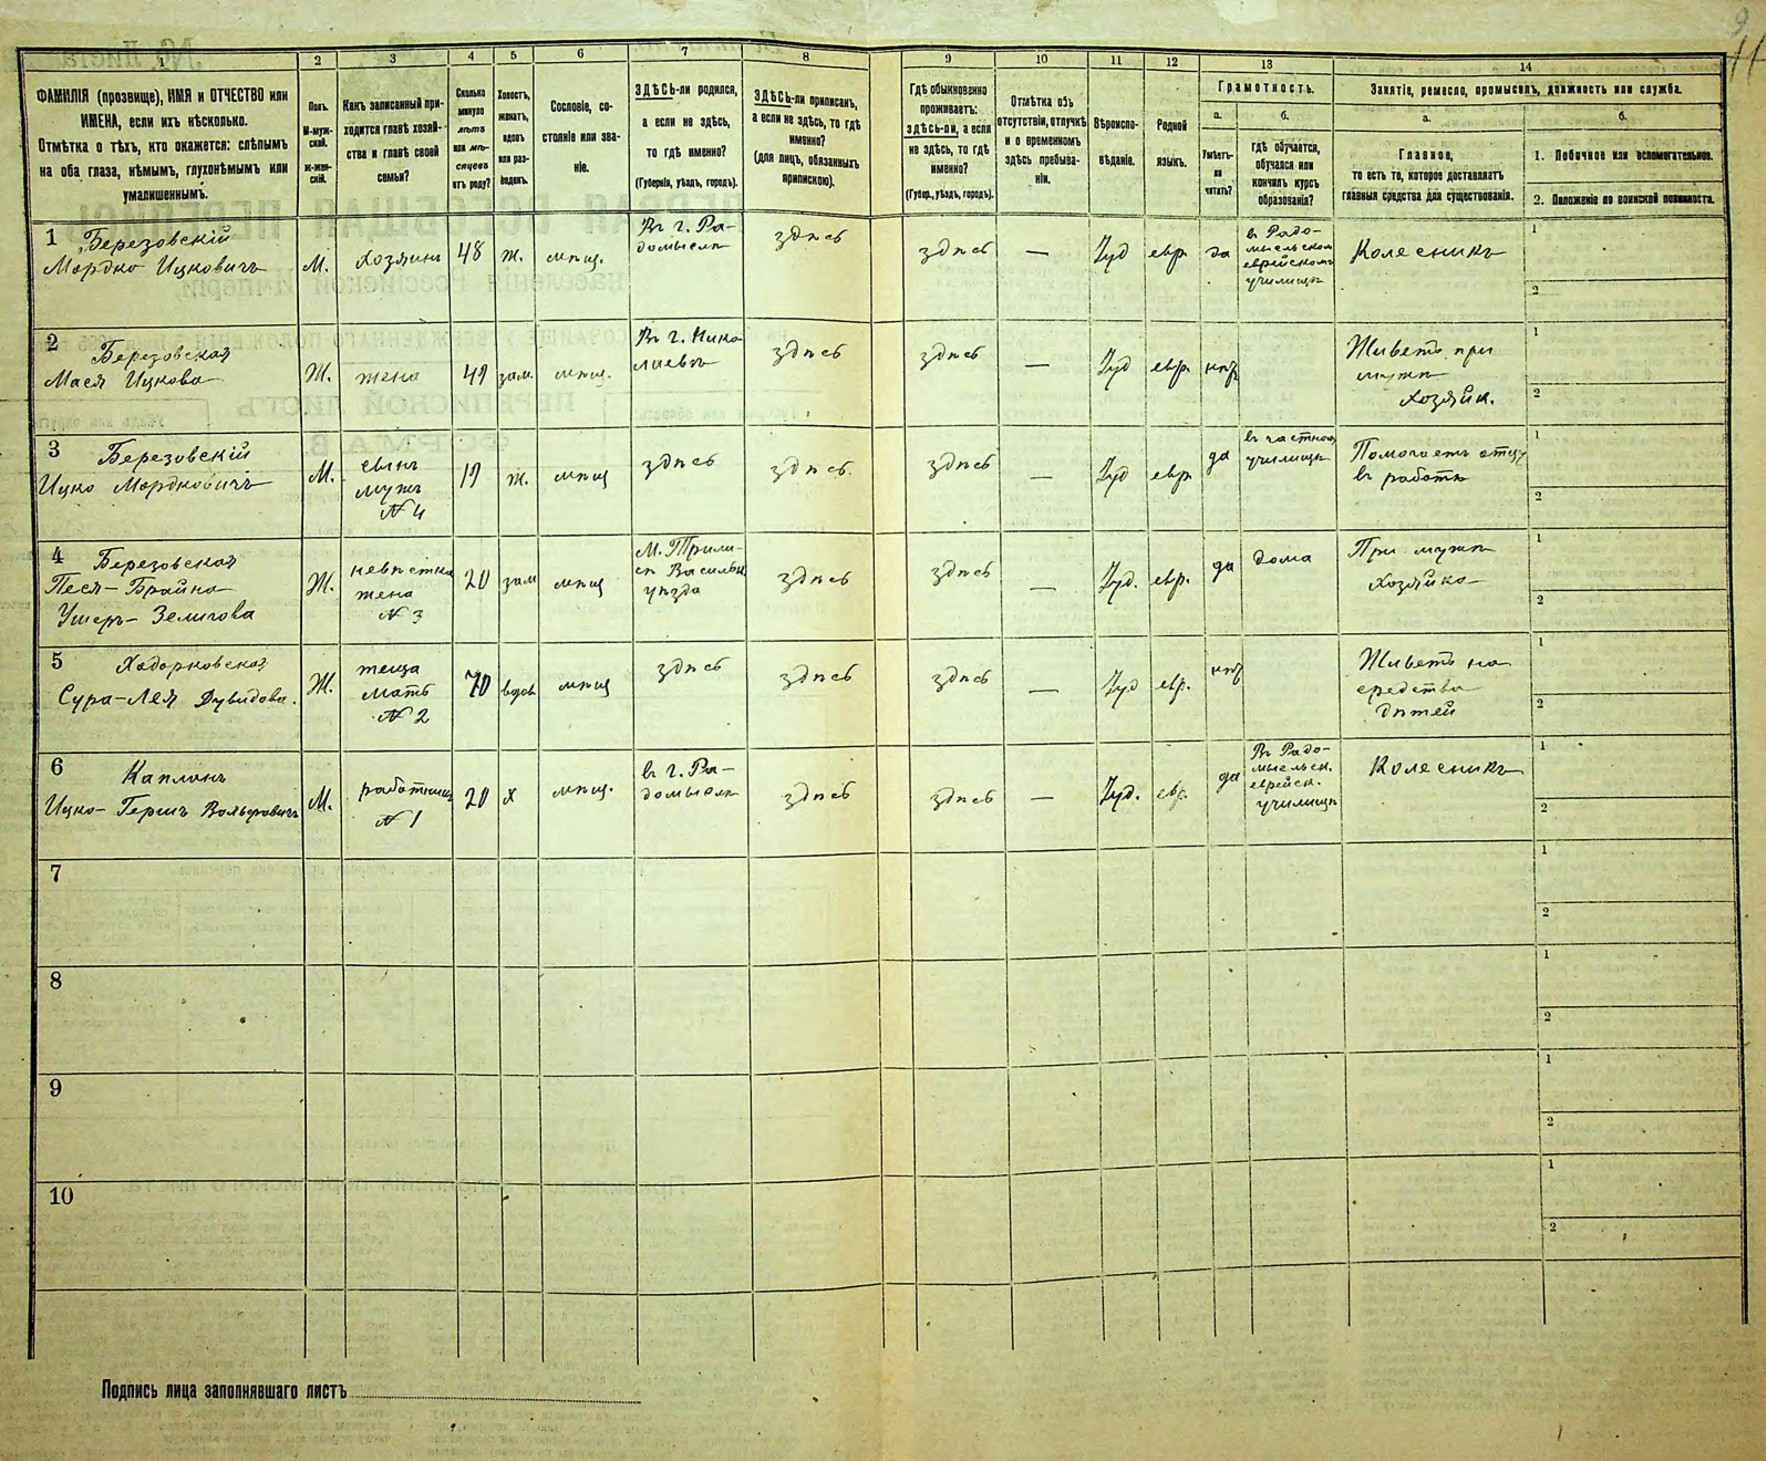 9
11
1
2
3
4
5
6
7
8
9
10
11
12
13
14
ФАМИЛІЯ (прозвище), ИМЯ и ОТЧЕСТВО или
ИМЕНА, если ихъ нѣсколько.
Отмѣтка о тѣхъ, кто окажется: слѣпымъ
на оба глаза, нѣмымъ, глухонѣмымъ или
умалишеннымъ.
Полъ.
М-муж-
ской.
Ж-жен-
скій.
Какъ записанный при-
ходится главѣ хозяй-
ства и главѣ своей
семьи?
Сколько
минуло
лѣтъ
или мѣ-
сяцевъ
отъ роду?
Холостъ,
женатъ,
вдовъ
или раз-
веденъ.
Сословіе, со-
стояніе или зва-
ніе.
ЗДѢСЬ-ли родился,
а если не здѣсь,
то гдѣ именно?
(Губернія, уѣздъ, городъ).
ЗДѢСЬ-ли приписанъ,
а если не здѣсь, то гдѣ
именно?
(для лицъ, обязанныхъ
припискою).
Гдѣ обыкновенно
проживаетъ:
здѣсь-ли, а если
не здѣсь, то гдѣ
именно?
(Губер., уѣздъ, городъ).
Отмѣтка объ
отсутствіи, отлучкѣ
и о временномъ
здѣсь пребыва-
ніи.
Вѣроиспо-
вѣданіе.
Родной
языкъ.
Грамотность.
а.
б.
Умѣетъ-
ли
читать?
Гдѣ обучается,
обучался или
кончилъ курсъ
образованія?
Занятіе, ремесло, промыселъ, должность или служба.
а.
б.
Главное,
то есть то, которое доставляетъ
главныя средства для существованія.
1. Побочное или вспомогательное.
2. Положеніе по воинской повинности.
1 Березовскій
Мордко Ицковичъ
М.
хозяинъ
48
ж.
мѣщ.
Въ г. Ра-
домыслѣ
здѣсь
здѣсь
—
Іуд
евр.
да
въ Радо-
мысльском
еврейскомъ
училищѣ
Колесникъ
1
2
2 Березовская
Мася Ицкова
Ж.
жена
49
зам.
мѣщ.
Въ г. Нико
лаевѣ
здѣсь
здѣсь
—
Іуд
евр.
нѣт
Живетъ при
мужѣ
хозяйк.
1
2
3 Березовскій
Ицко Мордковичъ
М.
сынъ
мужъ
№ 4
19
ж.
мѣщ
здѣсь
здѣсь.
здѣсь
—
Іуд
евр.
да
въ частном
училищѣ
Помогаетъ отцу
въ работѣ
1
2
4 Березовская
Песя-Брайна
Ушеръ-Зелигова
Ж.
невѣстка
жена
№ 3
20
зам
мѣщ
М. Трили-
сы Васильк.
уѣзда
здѣсь
здѣсь
—
Іуд.
евр.
да
дома
При мужѣ
хозяйка
1
2
5 Ходорковская
Сура-Лея Дувидова.
Ж.
теща
мать
№ 2
70
вдов.
мѣщ
здѣсь
здѣсь
здѣсь
—
Іуд
евр.
нѣт
Живетъ на
средства
дѣтей
1
2
6 Капланъ
Ицко-Гершъ Вольфовичъ
М.
работникъ
№ 1
20
х
мѣщ.
въ г. Ра-
домыслѣ
здѣсь
здѣсь
—
Іуд.
евр.
да
Въ Радо-
мысльск.
еврейск.
училищѣ
Колесникъ
1
2
7
1
2
8
1
2
9
1
2
10
1
2
Подпись лица заполнявшаго листъ